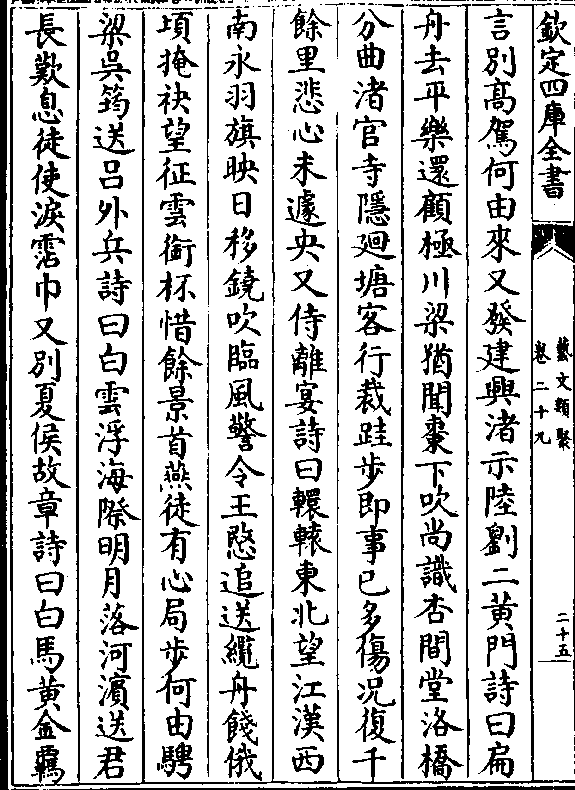 欽定四庫全書
藝文類聚
卷二十九
二十五
言別高駕何由來又發建興渚示陸劉二黄門詩曰扁
舟去平樂還顧極川梁猶聞棗下吹尚識杏間堂洛橋
分曲渚官寺隱廻塘客行裁跬歩即事已多傷况復千
餘里悲心未遽央又侍離宴詩曰轘轅東北望江漢西
南永羽旗映日移鐃吹臨風警令王愍追送纜舟餞俄
頃掩袂望征雲銜杯惜餘景首燕徒有心局歩何由騁
梁吳筠送吕外兵詩曰白雲浮海際明月落河濵送君
長歎息徒使淚霑巾又別夏侯故章詩曰白馬黄金羈